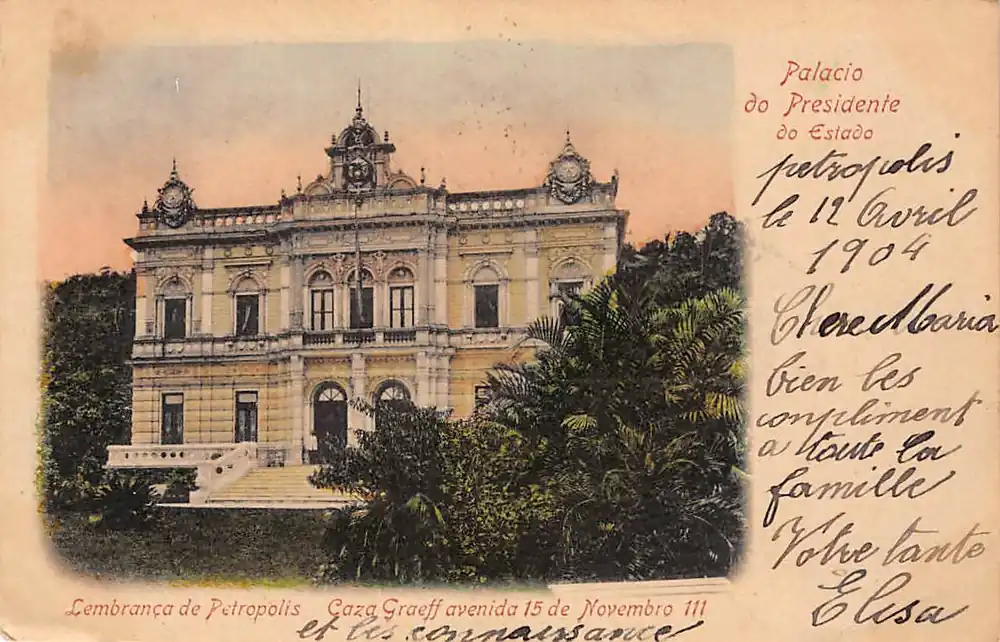 Palacio
do Presidente
do Estado
petropolis
le 12 Avril
1904
Chere Maria
bien les
conpliment
a toute la
famille
Votre tante
Elisa
Lembrança de Petropolis Caza Graeff avenida 15 de Novembro 111
et les connaissance